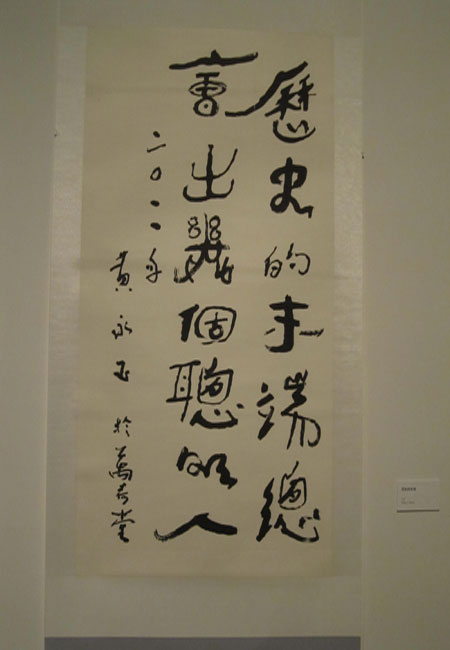 歷史的末端總
會出幾個聰明人
二〇一一年
黃永玉 於萬荷堂